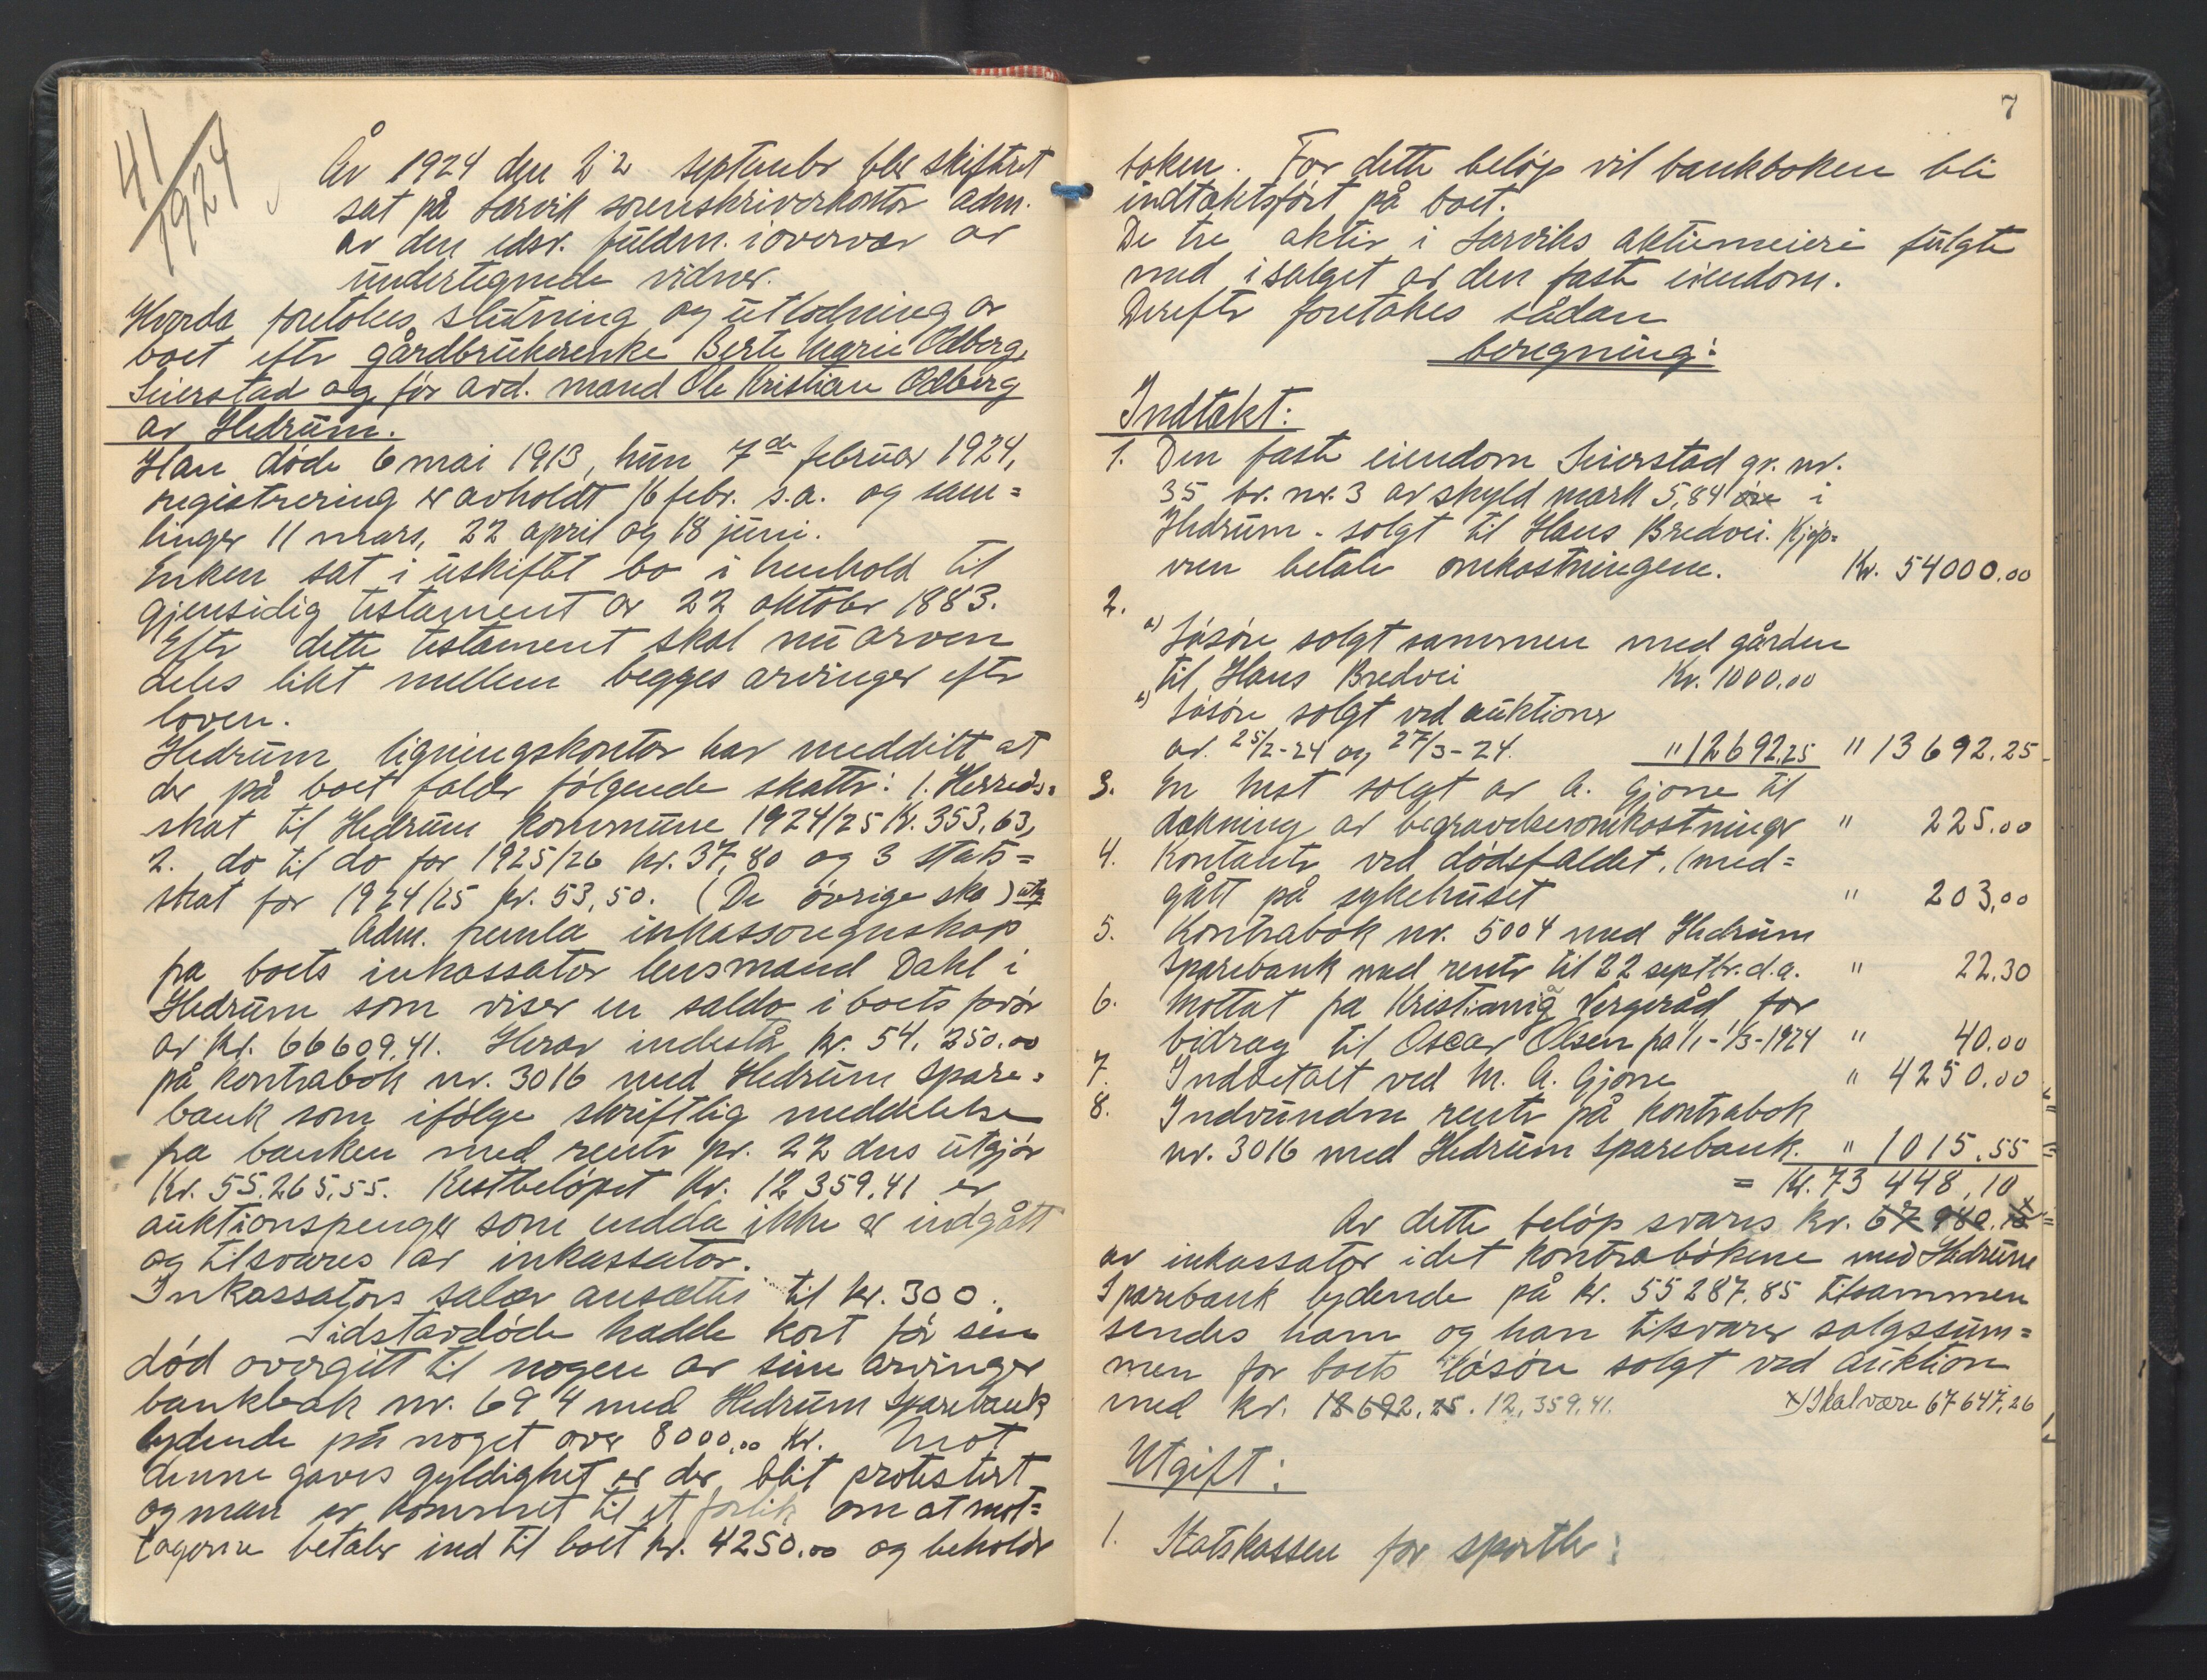 41/1924
År 1924 den 22 septembr blev skifteret
sat på Larvik sorenskriverkontor adm.
av den edsv. fuldm. i overvær av
undertegnede vidner.
Hvorda foretokes slutning og utlodning av
boet eftr gårdbrukerenke Berte Marie Odberg,
Seierstad og før avd. mand Ole Kristian Odberg
av Hedrum.
Han døde 6 mai 1913, hun 7de februar 1924,
registrering er avholdt 16 febr. s.a. og sam=
linger 11 mars, 22 april og 18 juni.
Enken sat i uskiftet bo i henhold til
gjensidig testament av 22 oktobr 1883.
Eftr dette testament skal nu arven
deles likt mellem begges arvinger eftr
loven.
Hedrum ligningskontor har meddelt at
der på boet faldr følgende skattr: 1. Herreds=
skat til Hedrum kommune 1924/25 Kr. 353,63,
2. do til do for 1925/26 kr. 37,80 og 3 stats=
skat for 1924/25 kr. 53,50. (De øvrige ska ) utg
Adm. fremla inkassoregnskap
fra boets inkassator lensmand Dahl i
Hedrum som viser en saldo i boets favør
av kr. 66609,41. Herav indestå kr. 54.250.00
på kontrabok nr. 3016 med Hedrum Spare=
bank som ifølge skriftlig meddelelse
fra banken med rentr pr. 22 dns utgjør
Kr. 55.265,55. Restbeløpet kr. 12359,41 er
auktionspenger som endda ikke er indgått
og tilsvares av inkassator.
Inkassators salær ansættes til kr. 300.
Sidstavdøde hadde kort før sin
død overgitt til nogen av sine arvinger
bankbok nr. 694 med Hedrum Sparebank
lydende på noget over 8000,00 kr. Mot
denne gaves gyldighet er der blit protestert
og man er kommet til et forlik om at mot=
tagerne betaler ind til boet kr. 4250.00 og beholdr
7
boken. For dette beløp vil bankboken bli
indtektsført på boet.
De tre aktier i Larviks aktiemeieri fulgte
med i salget av den faste eiendom.
Dereftr foretokes sådan
beregning:
Indtekt:
1. Den faste eiendom Seierstad gr. nr.
35 br. nr. 3 av skyld mark 5,84 øre i
Hedrum - solgt til Hans Bredvei. Kjøp=
eren betaler omkostningene. Kr. 54000.00
2.
a) Løsøre solgt sammen med gården
til Hans Bredvei Kr. 1000.00
b) Løsøre solgt ved auktioner
av. 25/2-24 og 27/3-24. " 12692,25 " 13692,25
3. En hest solgt av A. Gjone til
dækning av begravelsesomkostninger " 225.00
4. Kontanter ved dødsfaldet, (med=
gått på sykehuset " 203,00
5. Kontrabok nr. 5004 med Hedrum
Sparebank med rentr til 22 septbr. d.a. " 22.30
6. Mottat fra Kristiania Vergeråd for
bidrag til Oscar Olsen fra 1/1-1/3-1924 " 40.00
7. Indbetalt ved M. A. Gjone " 4250.00
8. Indvundne rentr på kontrabok
nr. 3016 med Hedrum Sparebank. " 1015,55
= Kr. 73 448,10
Av dette beløp svares kr. 67 980.10 x
av inkassator idet kontrabøkene med Hedrum
Sparebank lydende på kr. 55287.85 tilsammen
sendes ham og han tilsvarer salgssum=
men for boets løsøre solgt ved auktion
med kr. 12692,25. 12.359,41. x) Skal være 67647,26
Utgift:
1. Statskassen for sportler: